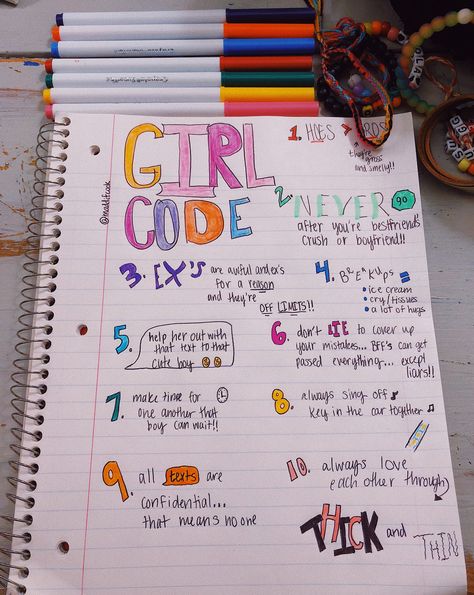 GIRL
CODE
@mattifcook
1. HOES > BROS
they're gross
and smelly!!
2. NEVER go
after you're bestfriends
crush or boyfriend!!
3. EX's are awiful andex's
for a reason
and they're
OFF LIMITS!!
4. BREAKUPS =
• ice cream
• cry/tissues
• a lot of hugs
5. help her out with
that text to that
cute boy
6. don't LIE to cover up
your mistakes... BFF's can get
passed everything... except
liars!!
7. make time for
one another that
boy can wait!!
8. always sing off
key in the car together
9. all texts are
confidential...
that means no one
10. always love
each other through
THICK and THIN